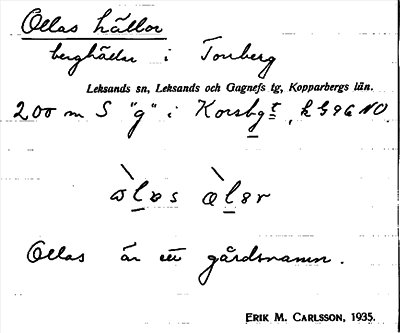 Ollas hällor
berghällar i Tonberg
Leksands sn, Leksands och Gagnefs tg, Kopparbergs län.
200 m S "g" i Korsbgt, k 996 NO
Ollas är ett gårdsnamn.
ERIK M. CARLSSON, 1935.